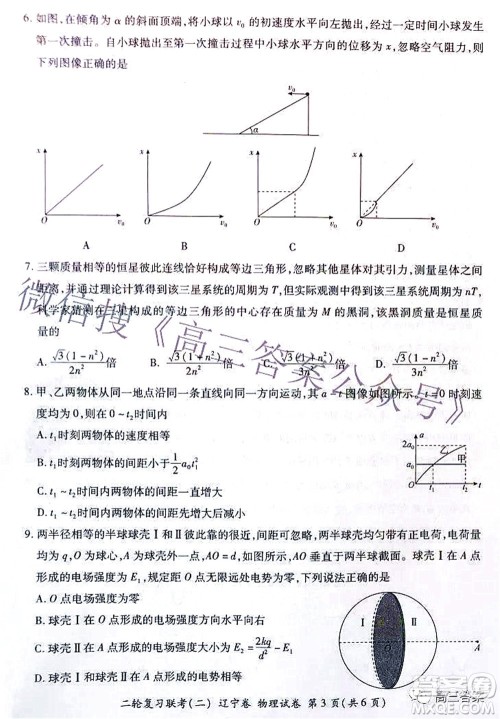 6. 如图,在倾角为 α 的斜面顶端,将小球以 v₀ 的初速度水平向左抛出,经过一定时间小球发生
第一次撞击。自小球抛出至第一次撞击过程中小球水平方向的位移为 x,忽略空气阻力,则
下列图像正确的是
v₀
α
x
O
v₀
A
x
O
v₀
B
x
O
v₀
C
x
O
v₀
D
7. 三颗质量相等的恒星彼此连线恰好构成等边三角形,忽略其他天体的影响,测量出星体质
量,并通过理论计算得到该三星系统的周期为 T,但实际观测中得到三星系统的周期为 nT,
科学家猜测在三星构成的等边三角形的中心存在质量为 M 的黑洞,该黑洞质量是恒星质量
的
A. √3(1−n²)/2n² 倍
B. √3(1+n²)/2n² 倍
C. √3(1−n²)/3n² 倍
D. √3(1+n²)/3n² 倍
8. 甲、乙两物体从同一地点沿同一条直线向同一方向运动,其 a−t 图像如图所示。t=0 时刻速
度均为零,则在 0~t₂ 时间内
A. t₁ 时刻两物体的速度相等
B. t₁ 时刻两物体的间距小于 1/2 a₀t₁²
C. t₁~t₂ 时间内两物体的间距一直增大
D. t₁~t₂ 时间内两物体的间距先增大后减小
a
2a₀
a₀
乙
甲
O
t₁
t₂
t
9. 两半径相等的半球球壳 Ⅰ 和 Ⅱ 彼此靠的很近,间距可忽略,两半球球壳均均匀带有正电荷,电荷量
均为 q,O 为球心,AO=d,静电力常量为 k,图中阴影部分为两半球截面。球壳 Ⅰ 和 Ⅱ 在 A 点
形成的电场强度为 E₁,规定无限远处电势为零,下列说法正确的是
A. O 点电场强度、电势均为零
B. 球壳 Ⅰ 在 O 点形成的电场强度方向水平向右
C. 球壳 Ⅱ 在 O 点形成的电场强度 E₂=2kq/d²−E₁
D. 球壳 Ⅰ 和 Ⅱ 在 O 点形成的电势相等
Ⅰ
Ⅱ
O
A
二轮复习联考(二) 辽宁卷 物理试卷 第 3 页(共 6 页)
微信搜《高三答案公众号》
高三答案